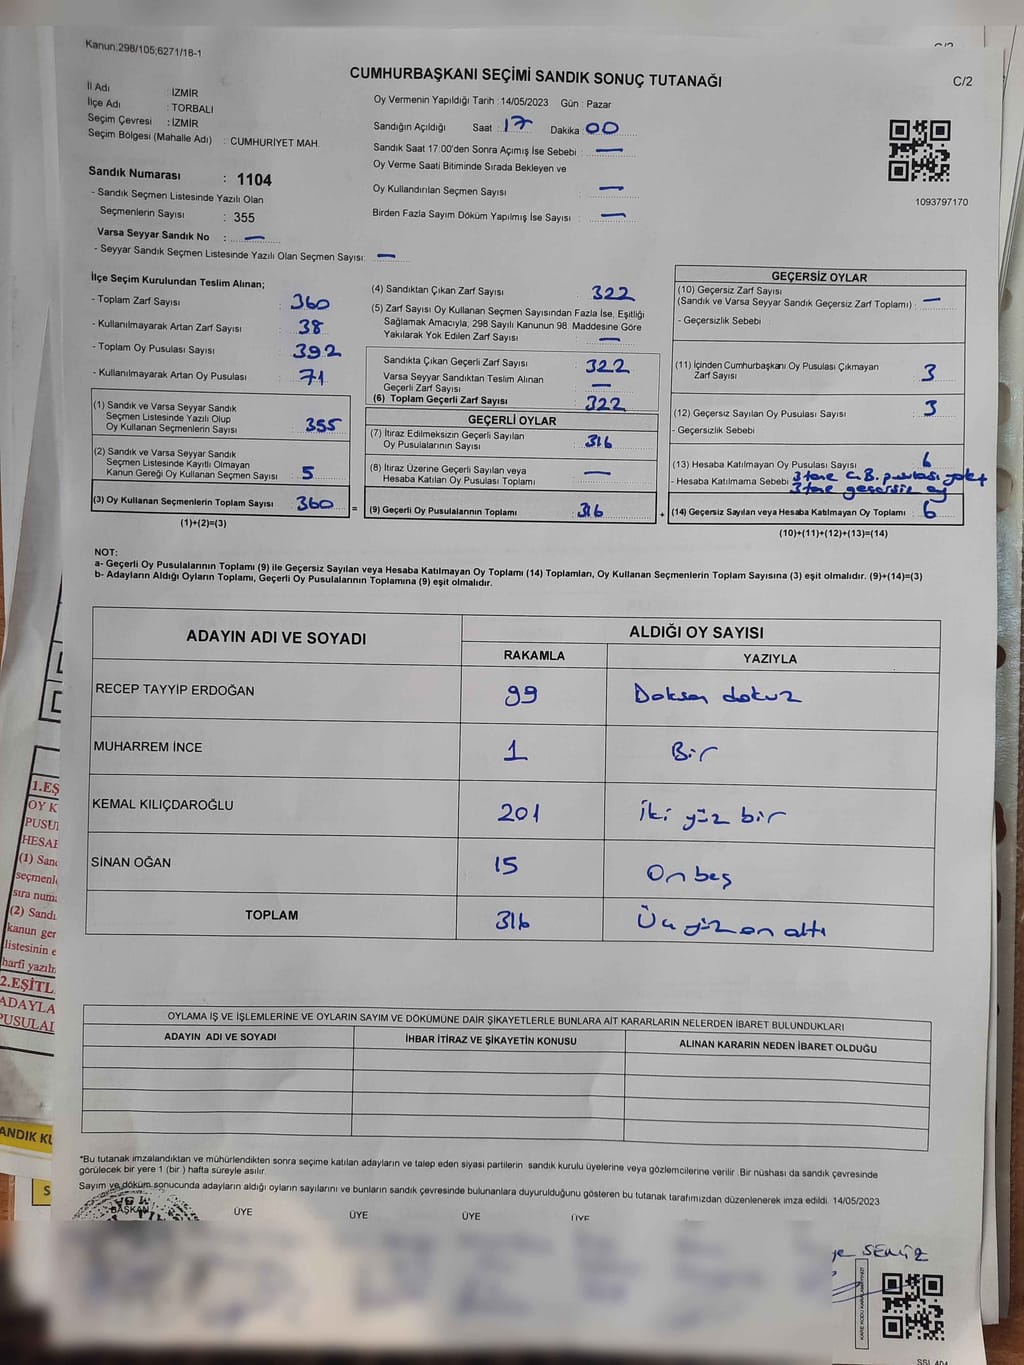 Kanun:298/105;6271/18-1
C/2
CUMHURBAŞKANI SEÇİMİ SANDIK SONUÇ TUTANAĞI
C/2
İl Adı : İZMİR
İlçe Adı : TORBALI
Seçim Çevresi : İZMİR
Seçim Bölgesi (Mahalle Adı) : CUMHURİYET MAH.
Sandık Numarası : 1104
- Sandık Seçmen Listesinde Yazılı Olan
Seçmenlerin Sayısı : 355
Varsa Seyyar Sandık No : —
- Seyyar Sandık Seçmen Listesinde Yazılı Olan Seçmen Sayısı: —
Oy Vermenin Yapıldığı Tarih :14/05/2023 Gün : Pazar
Sandığın Açıldığı Saat : 17 Dakika : 00
Sandık Saat 17:00'den Sonra Açımış İse Sebebi : —
Oy Verme Saati Bitiminde Sırada Bekleyen ve
Oy Kullandırılan Seçmen Sayısı : —
Birden Fazla Sayım Döküm Yapılmış İse Sayısı : —
1093797170
İlçe Seçim Kurulundan Teslim Alınan;
- Toplam Zarf Sayısı : 360
- Kullanılmayarak Artan Zarf Sayısı : 38
- Toplam Oy Pusulası Sayısı : 392
- Kullanılmayarak Artan Oy Pusulası : 71
(1) Sandık ve Varsa Seyyar Sandık
Seçmen Listesinde Yazılı Olup
Oy Kullanan Seçmenlerin Sayısı : 355
(2) Sandık ve Varsa Seyyar Sandık
Seçmen Listesinde Kayıtlı Olmayan
Kanun Gereği Oy Kullanan Seçmen Sayısı : 5
(3) Oy Kullanan Seçmenlerin Toplam Sayısı : 360
(1)+(2)=(3)
(4) Sandıktan Çıkan Zarf Sayısı : 322
(5) Zarf Sayısı Oy Kullanan Seçmen Sayısından Fazla İse, Eşitliği
Sağlamak Amacıyla, 298 Sayılı Kanunun 98. Maddesine Göre
Yakılarak Yok Edilen Zarf Sayısı : —
Sandıkta Çıkan Geçerli Zarf Sayısı : 322
Varsa Seyyar Sandıktan Teslim Alınan
Geçerli Zarf Sayısı : —
(6) Toplam Geçerli Zarf Sayısı : 322
GEÇERLİ OYLAR
(7) İtiraz Edilmeksizin Geçerli Sayılan
Oy Pusulalarının Sayısı : 316
(8) İtiraz Üzerine Geçerli Sayılan veya
Hesaba Katılan Oy Pusulası Toplamı : —
= (9) Geçerli Oy Pusulalarının Toplamı : 316
GEÇERSİZ OYLAR
(10) Geçersiz Zarf Sayısı
(Sandık ve Varsa Seyyar Sandık Geçersiz Zarf Toplamı) : —
- Geçersizlik Sebebi :
(11) İçinden Cumhurbaşkanı Oy Pusulası Çıkmayan
Zarf Sayısı : 3
(12) Geçersiz Sayılan Oy Pusulası Sayısı : 3
- Geçersizlik Sebebi
(13) Hesaba Katılmayan Oy Pusulası Sayısı : 6
- Hesaba Katılmama Sebebi : 3 tane C.B. pusulası yoktu
3 tane geçersiz oy
+ (14) Geçersiz Sayılan veya Hesaba Katılmayan Oy Toplamı : 6
(10)+(11)+(12)+(13)=(14)
NOT:
a- Geçerli Oy Pusulalarının Toplamı (9) ile Geçersiz Sayılan veya Hesaba Katılmayan Oy Toplamı (14) Toplamları, Oy Kullanan Seçmenlerin Toplam Sayısına (3) eşit olmalıdır. (9)+(14)=(3)
b- Adayların Aldığı Oyların Toplamı, Geçerli Oy Pusulalarının Toplamına (9) eşit olmalıdır.
ADAYIN ADI VE SOYADI ALDIĞI OY SAYISI
RAKAMLA YAZIYLA
RECEP TAYYİP ERDOĞAN 99 Doksan dokuz
MUHARREM İNCE 1 Bir
KEMAL KILIÇDAROĞLU 201 İki yüz bir
SİNAN OĞAN 15 On beş
TOPLAM 316 Üç yüz on altı
OYLAMA İŞ VE İŞLEMLERİNE VE OYLARIN SAYIM VE DÖKÜMÜNE DAİR ŞİKAYETLERLE BUNLARA AİT KARARLARIN NELERDEN İBARET BULUNDUKLARI
ADAYIN ADI VE SOYADI İHBAR İTİRAZ VE ŞİKAYETİN KONUSU ALINAN KARARIN NEDEN İBARET OLDUĞU
*Bu tutanak imzalandıktan ve mühürlendikten sonra seçime katılan adayların ve talep eden siyasi partilerin sandık kurulu üyelerine veya gözlemcilerine verilir .Bir nüshası da sandık çevresinde
görülecek bir yere 1 (bir ) hafta süreyle asılır.
Sayım ve döküm sonucunda adayların aldığı oyların sayılarını ve bunların sandık çevresinde bulunanlara duyurulduğunu gösteren bu tutanak tarafımızdan düzenlenerek imza edildi. 14/05/2023
BAŞKAN ÜYE ÜYE ÜYE ÜYE
SEMİZ
1.EŞ
OY K
PUSU
HESAF
(1) Sand
seçmenl
sıra numa
(2) Sandı
kanun ger
listesinin e
harfi yazılı
2.EŞİTL
ADAYLA
PUSULAI
ANDIK KU
S